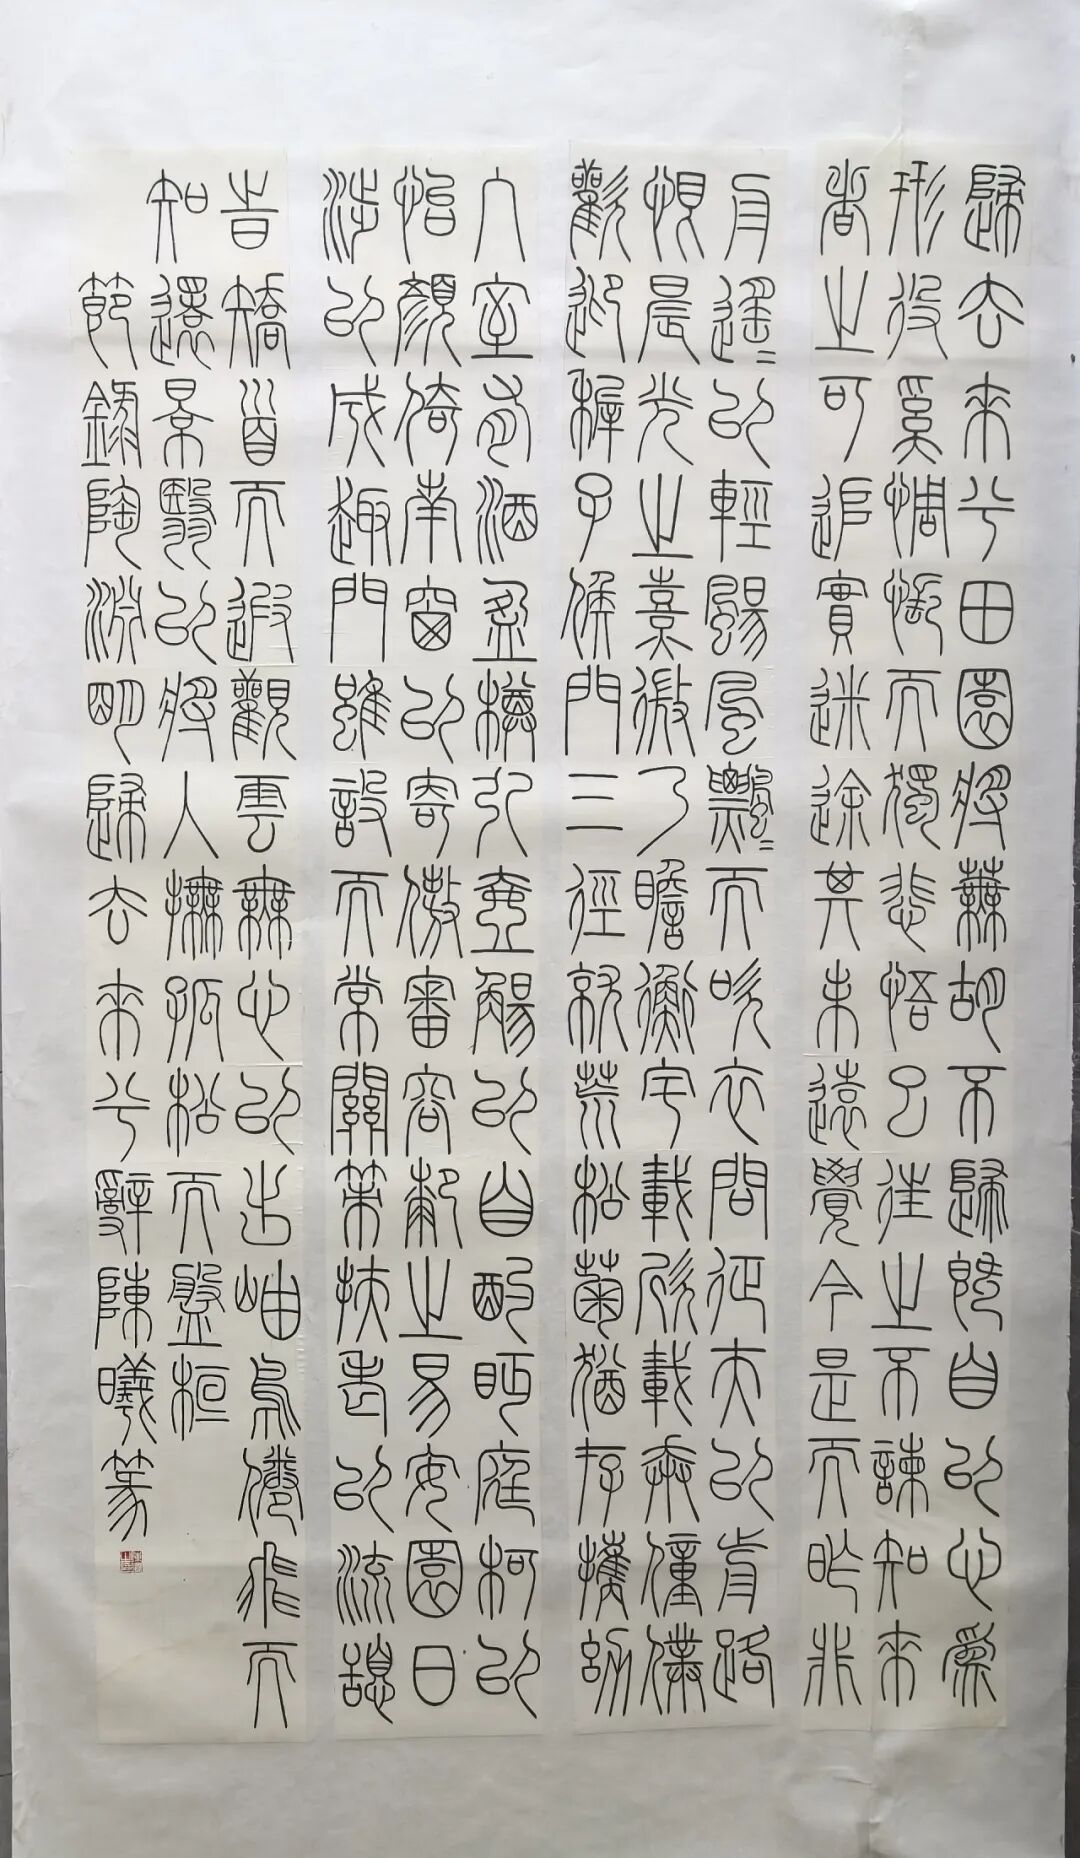 歸去來兮田園將蕪胡不歸既自以心爲
形役奚惆悵而獨悲悟已往之不諫知來
者之可追實迷途其未遠覺今是而昨非
舟遙〻以輕颺風飄〻而吹衣問征夫以前路
恨晨光之熹微乃瞻衡宇載欣載奔僮僕
歡迎稚子候門三徑就荒松菊猶存攜幼
入室有酒盈樽引壺觴以自酌眄庭柯以
怡顏倚南窗以寄傲審容膝之易安園日
涉以成趣門雖設而常關策扶老以流憩
時矯首而遐觀雲無心以出岫鳥倦飛而
知還景翳以將入撫孤松而盤桓
節錄陶淵明歸去來兮辭陳曦篆